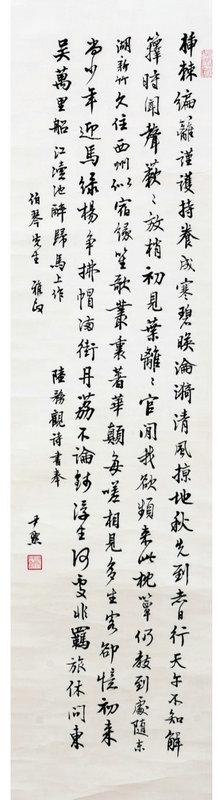 插棘編籬謹護持養成寒碧暎淪漪清風掠地秋先到赤日行天午不知解
籜時聞聲蔌〻放梢初見葉離〻官閒我欲頻來此枕簟仍教到處隨東
湖新竹久住西州似宿緣笙歌叢裏著華顛每嗟相見多生客卻憶初來
尚少年迎馬綠楊爭拂帽滿街丹荔不論錢浮生何處非羈旅休問東
吳萬里船江瀆池醉歸馬上作 陸務觀詩書奉
伯琴先生雅政
尹默